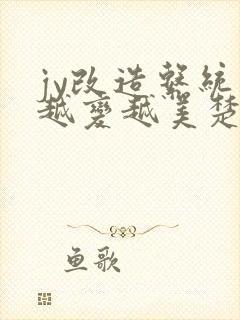 jy改造系統
越變越美楚
鱼歌